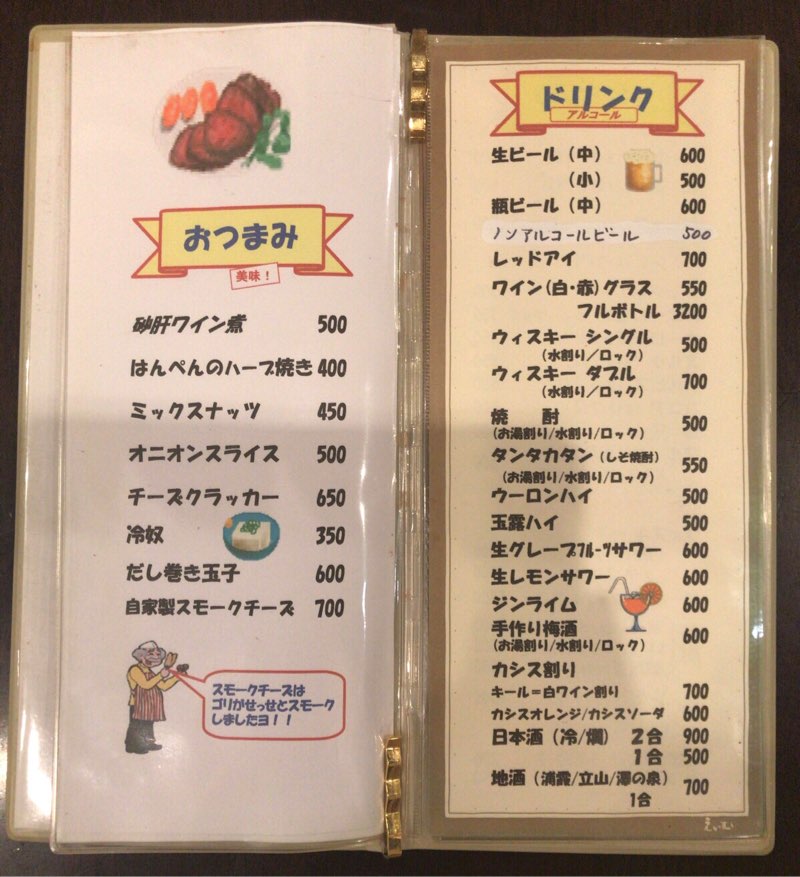 おつまみ
美味！
砂肝ワイン煮 500
はんぺんのハーブ焼き 400
ミックスナッツ 450
オニオンスライス 500
チーズクラッカー 650
冷奴 350
だし巻き玉子 600
自家製スモークチーズ 700
スモークチーズは
ゴリがせっせとスモーク
しましたヨ！！
ドリンク
アルコール
生ビール（中） 600
（小） 500
瓶ビール（中） 600
ノンアルコールビール 500
レッドアイ 700
ワイン（白・赤）グラス 550
フルボトル 3200
ウィスキー シングル 500
（水割り／ロック）
ウィスキー ダブル 700
（水割り／ロック）
焼 酎 500
（お湯割り/水割り/ロック）
タンタカタン（しそ焼酎） 550
（お湯割り/水割り/ロック）
ウーロンハイ 500
玉露ハイ 500
生グレープフルーツサワー 600
生レモンサワー 600
ジンライム 600
手作り梅酒 600
（お湯割り/水割り/ロック）
カシス割り
キール＝白ワイン割り 700
カシスオレンジ/カシスソーダ 600
日本酒（冷/燗） 2合 900
1合 500
地酒（浦霞/立山/澤の泉） 700
1合